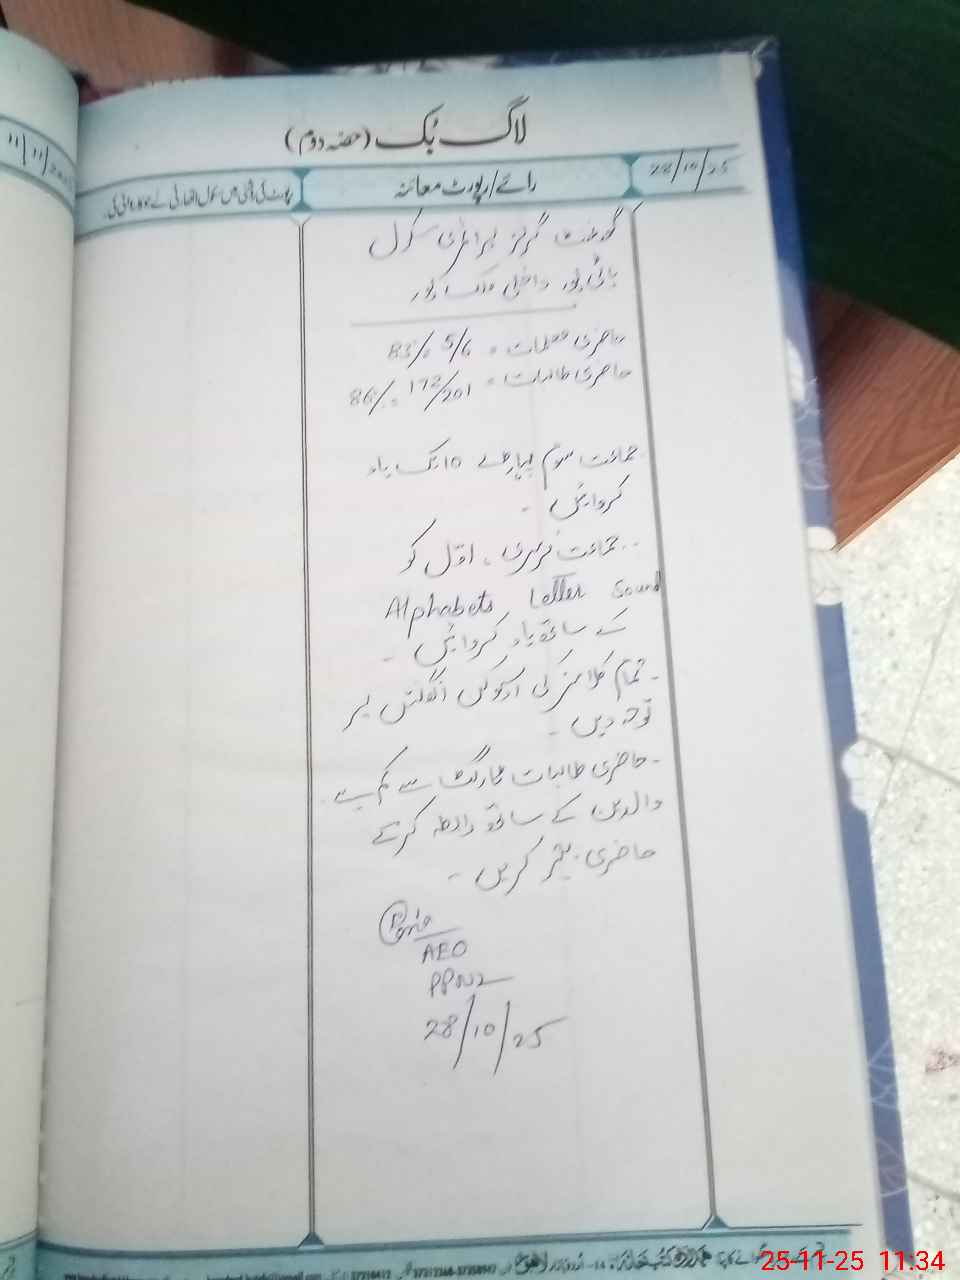 لاگ بک (حصہ دوم)
28/10/25
رائے/رپورٹ معائنہ
رپورٹ کی روشنی میں سکول اتھارٹی نے جو کاروائی کی۔
گورنمنٹ گرلز پرائمری سکول
داخلی ملک پور
حاضری معلمات = 5/6 = 83%
حاضری طالبات = 172/201 = 86%
جماعت سوم پہاڑے 10 تک یاد
کروائیں -
- جماعت نرسری، اوّل کو
Alphabets Letter Sound
کے ساتھ یاد کروائیں -
- تمام کلاسز کی اردو انگلش پر
توجہ دیں -
- حاضری طالبات ٹارگٹ سے کم ہے -
والدین کے ساتھ رابطہ کرکے
حاضری بہتر کریں -
AEO
28/10/25
11/11/
25-11-25 11:34